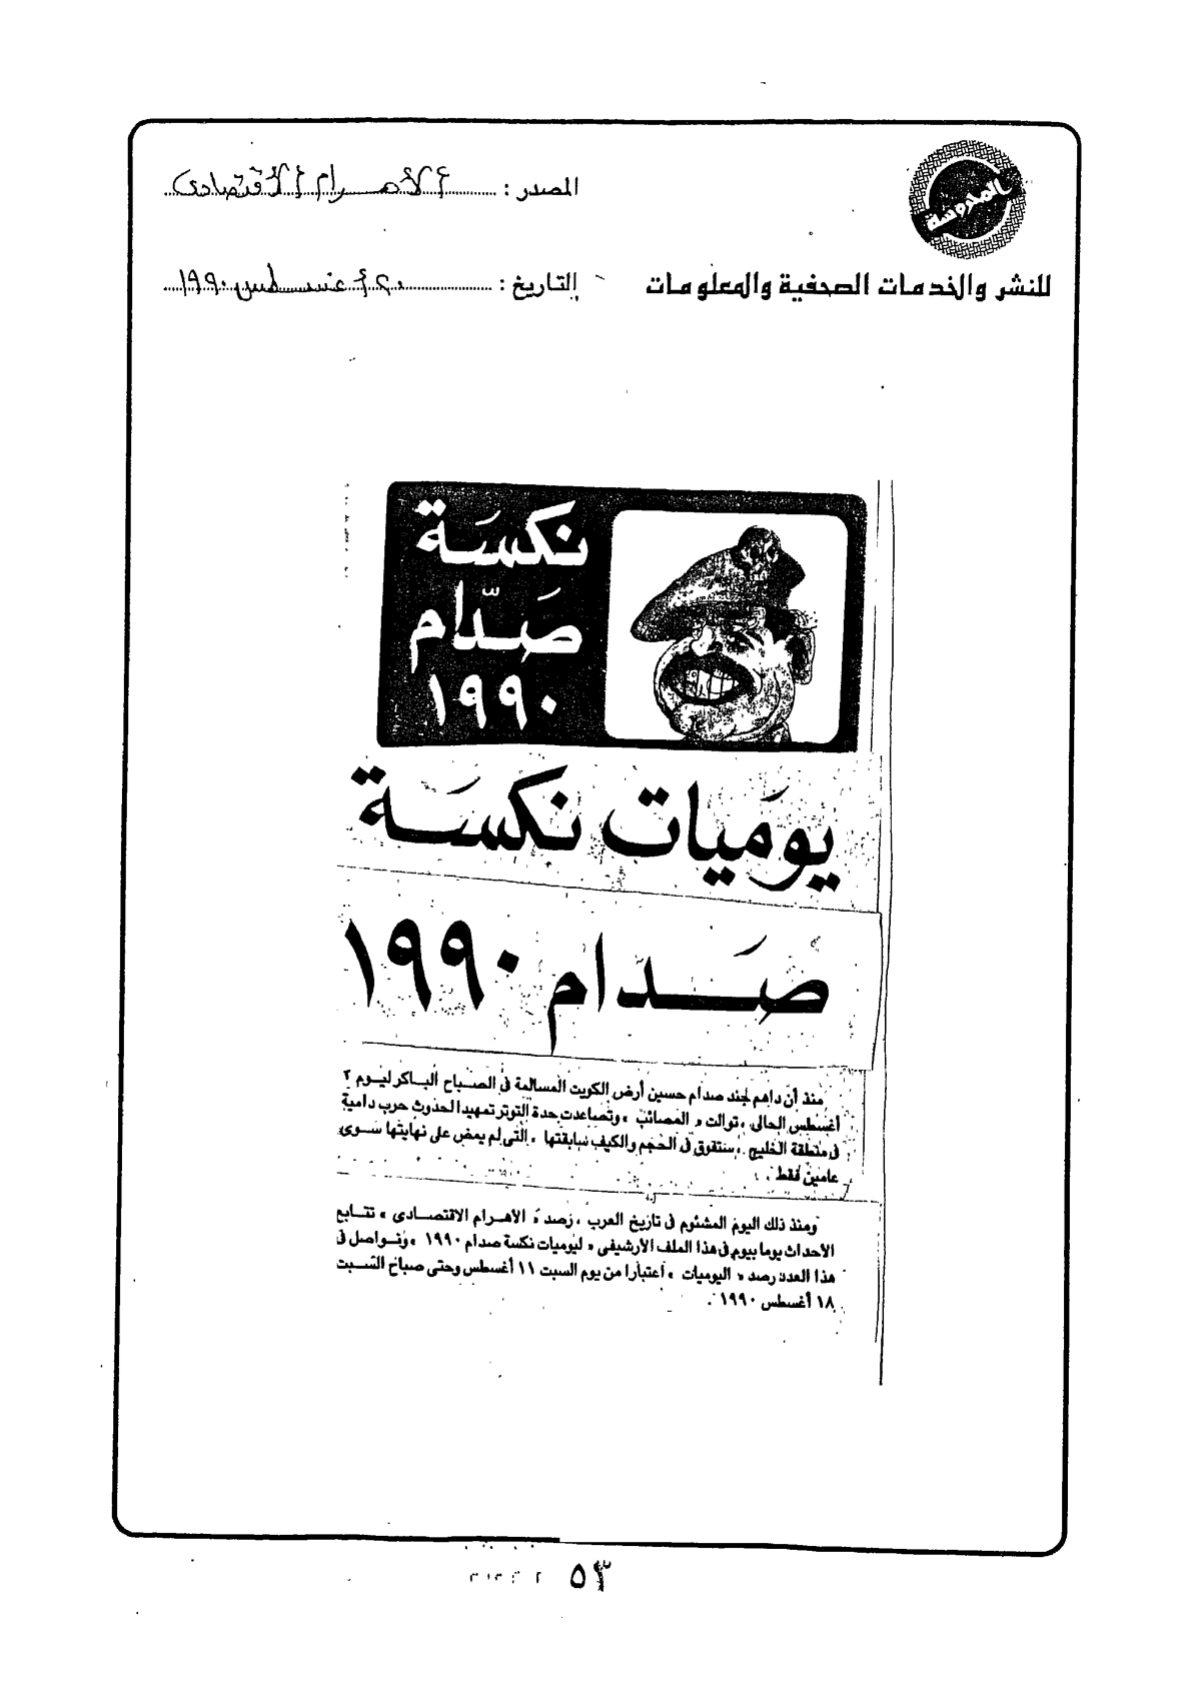 المحروسة
للنشر والخدمات الصحفية والمعلومات
المصدر : الأهرام الاقتصادى
التاريخ : ٢٠ أغسطس ١٩٩٠
نكسة
صدّام
١٩٩٠
يوميات نكسة
صدام ١٩٩٠
منذ أن داهم جند صدام حسين أرض الكويت المسالمة فى الصباح الباكر ليوم ٢
أغسطس الحالى ، توالت « المصائب » وتصاعدت حدة التوتر تمهيدا لحدوث حرب دامية
فى منطقة الخليج . ستفوق فى الحجم والكيف سابقتها ، التى لم يمض على نهايتها سوى
عامين فقط .
ومنذ ذلك اليوم المشئوم فى تاريخ العرب ، رصد « الاهرام الاقتصادى » تتابع
الأحداث يوما بيوم فى هذا الملف الارشيفى « ليوميات نكسة صدام ١٩٩٠ » ونواصل فى
هذا العدد رصد « اليوميات » اعتبارا من يوم السبت ١١ أغسطس وحتى صباح السبت
١٨ أغسطس ١٩٩٠ .
٥٣